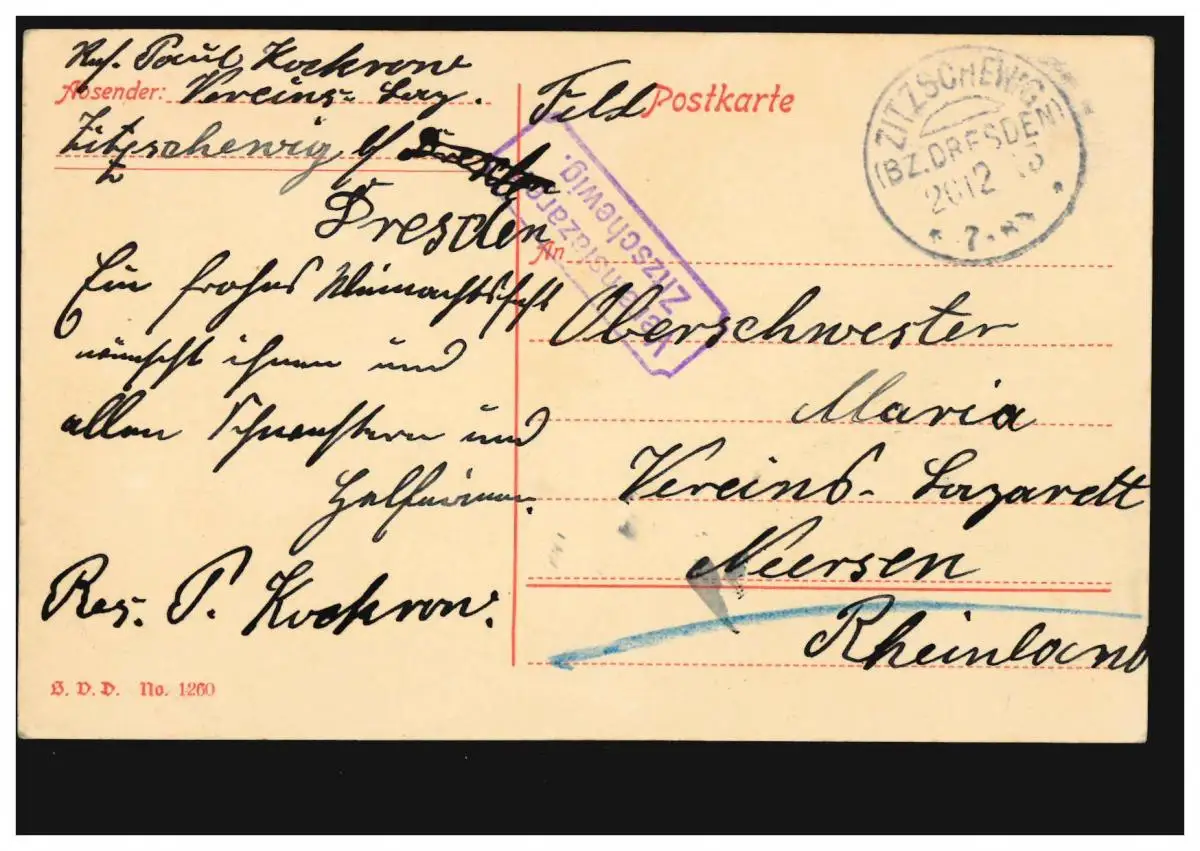 Res. Paul Kockrow
Absender: Vereins-Laz.
Zitzschewig b/ Dresden
Dresden
Ein frohes Weinachtsfest
wünscht ihnen und
allen Schwestern und
Helferinnen.
Res. P. Kockrow.
S.V.D. No. 1260
Feld Postkarte
ZITZSCHEWIG
(BZ. DRESDEN)
2612 15
* 7-8N *
Vereinslazarett
Zitzschewig.
An
Oberschwester
Maria
Vereins-Lazarett
Neersen
Rheinland